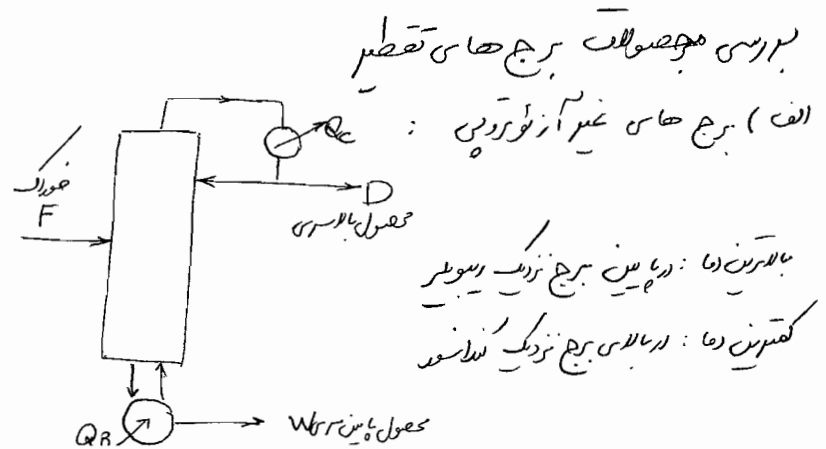 بررسی محصولات برج های تقطیر
الف) برج های غیر آزئوتروپی :
Qc
خوراک
F
D
محصول بالاسری
بالاترین دما : در پایین برج نزدیک ریبویلر
کمترین دما : در بالای برج نزدیک کندانسور
QR
W محصول پایین سری